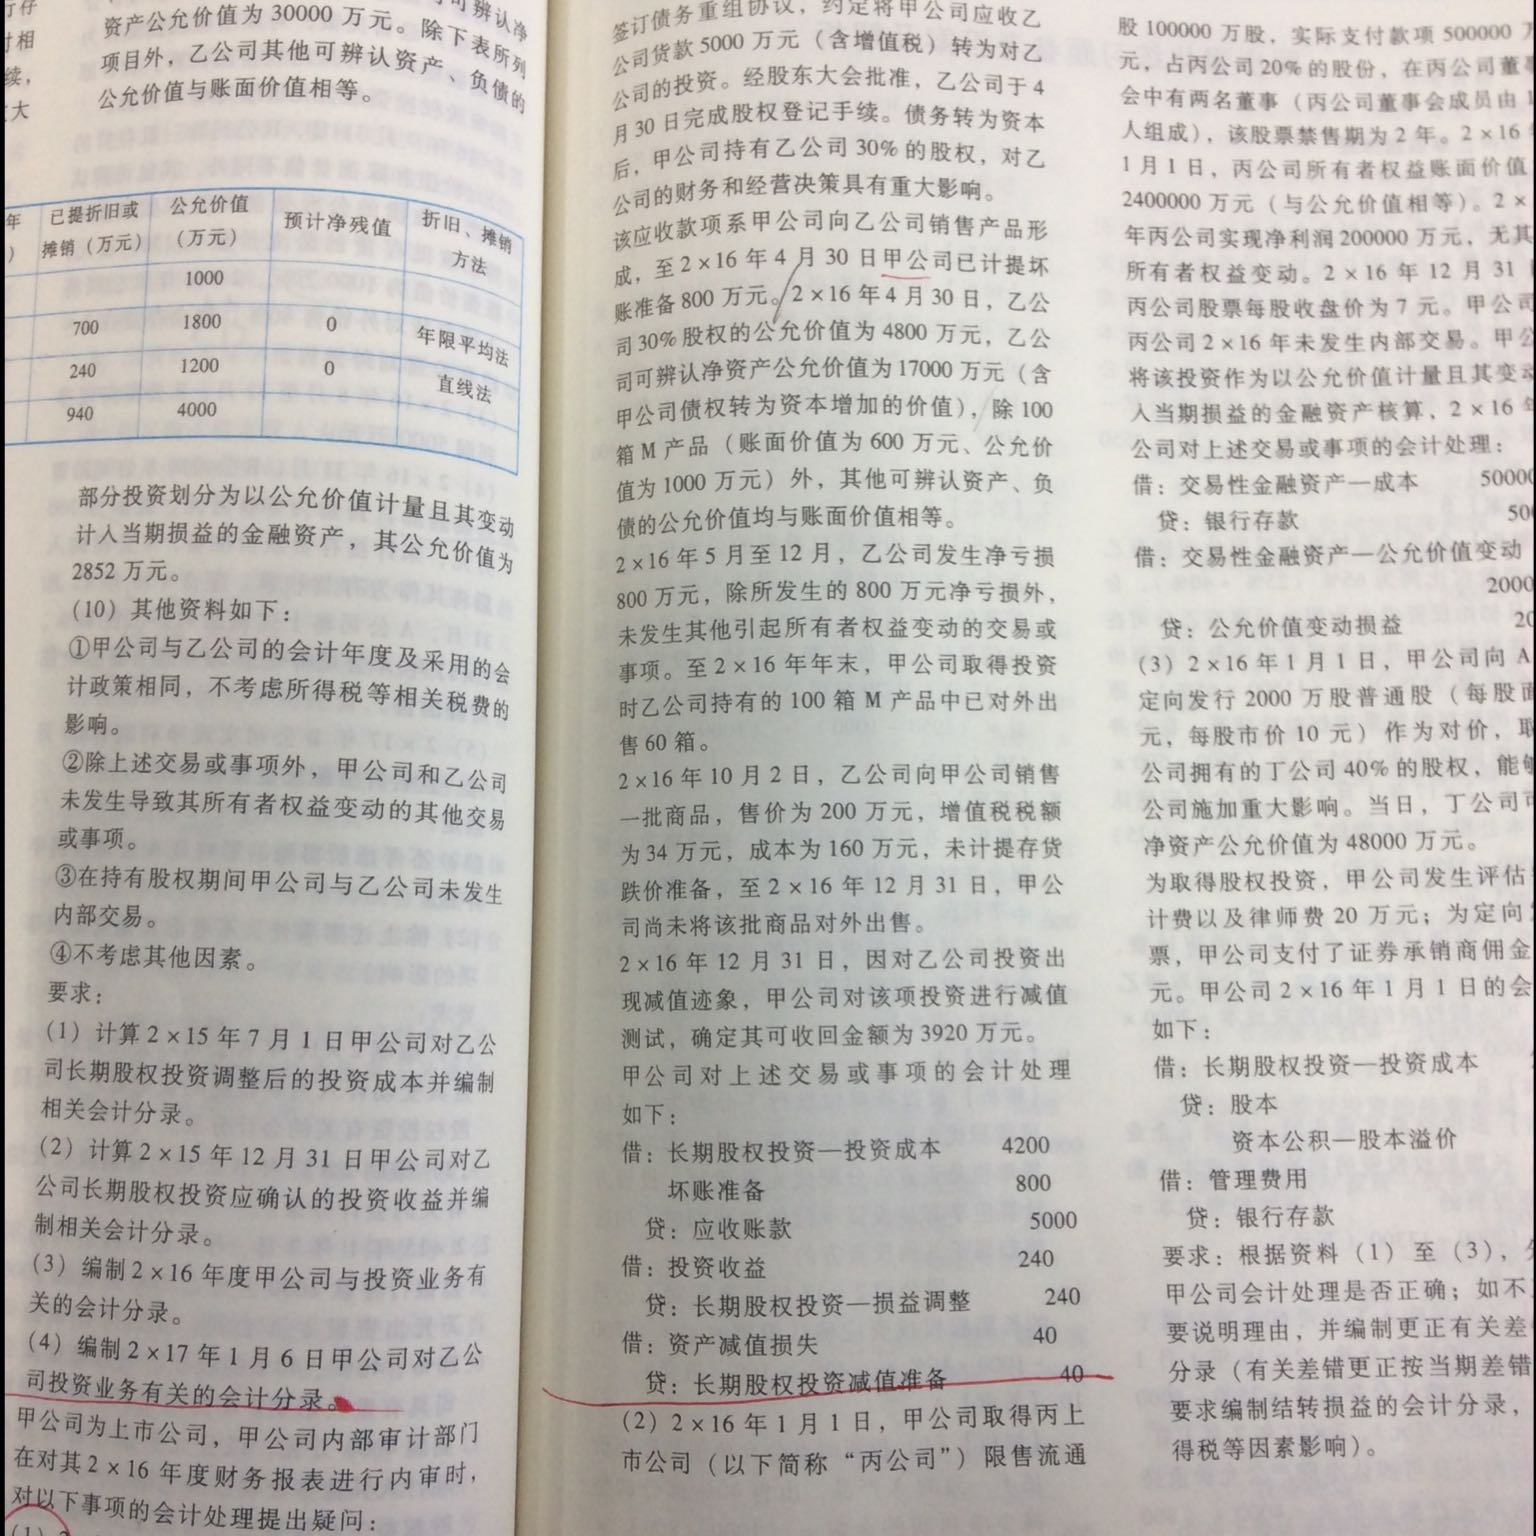 可辨认净
资产公允价值为30000万元。除下表所列
项目外，乙公司其他可辨认资产、负债的
公允价值与账面价值相等。
已提折旧或
摊销（万元）
公允价值
（万元）
预计净残值
折旧、摊销
方法
1000
700 1800 0 年限平均法
240 1200 0 直线法
940 4000
部分投资划分为以公允价值计量且其变动
计入当期损益的金融资产，其公允价值为
2852万元。
(10) 其他资料如下：
①甲公司与乙公司的会计年度及采用的会
计政策相同，不考虑所得税等相关税费的
影响。
②除上述交易或事项外，甲公司和乙公司
未发生导致其所有者权益变动的其他交易
或事项。
③在持有股权期间甲公司与乙公司未发生
内部交易。
④不考虑其他因素。
要求：
(1) 计算2×15年7月1日甲公司对乙公
司长期股权投资调整后的投资成本并编制
相关会计分录。
(2) 计算2×15年12月31日甲公司对乙
公司长期股权投资应确认的投资收益并编
制相关会计分录。
(3) 编制2×16年度甲公司与投资业务有
关的会计分录。
(4) 编制2×17年1月6日甲公司对乙公
司投资业务有关的会计分录。
甲公司为上市公司，甲公司内部审计部门
在对其2×16年度财务报表进行内审时，
对以下事项的会计处理提出疑问：
签订债务重组协议，约定将甲公司应收乙
公司货款5000万元（含增值税）转为对乙
公司的投资。经股东大会批准，乙公司于4
月30日完成股权登记手续。债务转为资本
后，甲公司持有乙公司30%的股权，对乙
公司的财务和经营决策具有重大影响。
该应收款项系甲公司向乙公司销售产品形
成，至2×16年4月30日甲公司已计提坏
账准备800万元。2×16年4月30日，乙公
司30%股权的公允价值为4800万元，乙公
司可辨认净资产公允价值为17000万元（含
甲公司债权转为资本增加的价值），除100
箱M产品（账面价值为600万元、公允价
值为1000万元）外，其他可辨认资产、负
债的公允价值均与账面价值相等。
2×16年5月至12月，乙公司发生净亏损
800万元，除所发生的800万元净亏损外，
未发生其他引起所有者权益变动的交易或
事项。至2×16年年末，甲公司取得投资
时乙公司持有的100箱M产品中已对外出
售60箱。
2×16年10月2日，乙公司向甲公司销售
一批商品，售价为200万元，增值税税额
为34万元，成本为160万元，未计提存货
跌价准备，至2×16年12月31日，甲公
司尚未将该批商品对外出售。
2×16年12月31日，因对乙公司投资出
现减值迹象，甲公司对该项投资进行减值
测试，确定其可收回金额为3920万元。
甲公司对上述交易或事项的会计处理
如下：
借：长期股权投资—投资成本 4200
坏账准备 800
贷：应收账款 5000
借：投资收益 240
贷：长期股权投资—损益调整 240
借：资产减值损失 40
贷：长期股权投资减值准备 40
(2) 2×16年1月1日，甲公司取得丙上
市公司（以下简称“丙公司”）限售流通
股100000万股，实际支付款项500000万
元，占丙公司20%的股份，在丙公司董事
会中有两名董事（丙公司董事会成员由1
人组成），该股票禁售期为2年。2×16
1月1日，丙公司所有者权益账面价值
2400000万元（与公允价值相等）。2×
年丙公司实现净利润200000万元，无其
所有者权益变动。2×16年12月31
丙公司股票每股收盘价为7元。甲公司
丙公司2×16年未发生内部交易。甲公
将该投资作为以公允价值计量且其变动
入当期损益的金融资产核算，2×16年
公司对上述交易或事项的会计处理：
借：交易性金融资产—成本 50000
贷：银行存款 500
借：交易性金融资产—公允价值变动
2000
贷：公允价值变动损益 20
(3) 2×16年1月1日，甲公司向A
定向发行2000万股普通股（每股面
元，每股市价10元）作为对价，取
公司拥有的丁公司40%的股权，能够
公司施加重大影响。当日，丁公司可
净资产公允价值为48000万元。
为取得股权投资，甲公司发生评估
计费以及律师费20万元；为定向
票，甲公司支付了证券承销商佣金
元。甲公司2×16年1月1日的会
如下：
借：长期股权投资—投资成本
贷：股本
资本公积—股本溢价
借：管理费用
贷：银行存款
要求：根据资料（1）至（3），
甲公司会计处理是否正确；如不
要说明理由，并编制更正有关差
分录（有关差错更正按当期差错
要求编制结转损益的会计分录，
得税等因素影响）。